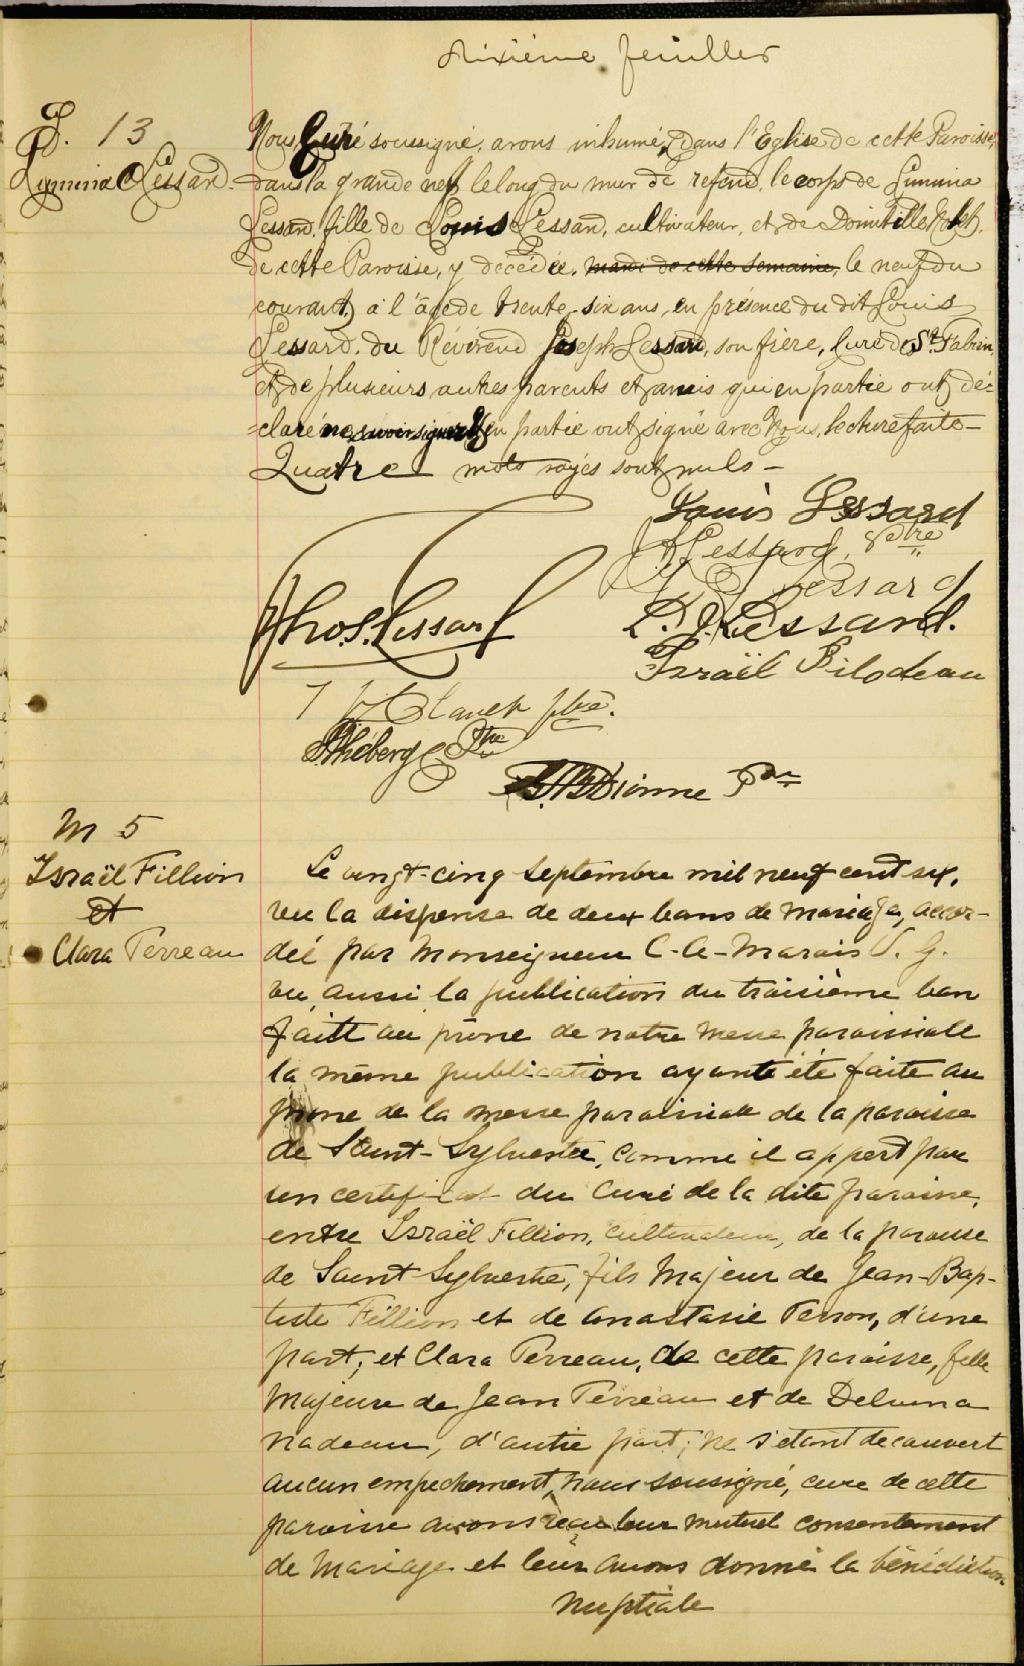 Sixième feuillet
S. 13
Lumina Lessard.
Nous Curé soussigné, avons inhumé, dans l'Eglise de cette Paroisse,
dans la grande nef le long du mur de refend, le corps de Lumina
Lessard, fille de Louis Lessard, cultivateur, et de Domitille
de cette Paroisse, y décédée, mardi de cette semaine, le neuf du
courant, à l'âge de trente-six ans, en présence du dit Louis
Lessard, du Révérend Joseph Lessard, son frère, Curé de St. Fabien,
et de plusieurs autres parents et amis qui en partie ont dé-
=claré ne savoir signer et en partie ont signé avec Nous, lecture faite—
Quatre mots rayés sont nuls—
Louis Lessard
Lessard, Ptre
Lessard
Thos. Lessard
L. J. Lessard.
Israël Bilodeau
ptre.
Théberge Ptre
Dionne Ptre
M 5
Israël Fillion
et
Clara Terreau
Le vingt-cinq septembre mil neuf cent six,
vu la dispense de deux bans de mariage, accor-
dée par Monseigneur C-A-Marois V. G.
vu aussi la publication du troisième ban
faite au prône de notre messe paroissiale
la même publication ayant été faite au
prone de la messe paroissiale de la paroisse
de Saint-Sylvestre, comme il appert par
un certificat du Curé de la dite paroisse,
entre Israël Fillion, cultivateur, de la paroisse
de Saint-Sylvestre, fils majeur de Jean-Bap-
tiste Fillion et de Anastasie Perron, d'une
part; et Clara Terreau, de cette paroisse, fille
majeure de Jean Terreau et de Delvina
nadeau, d'autre part; ne s'étant découvert
aucun empechement, nous soussigné, curé de cette
paroisse avons reçu leur mutuel consentement
de mariage et leur avons donné la bénédiction
nuptiale